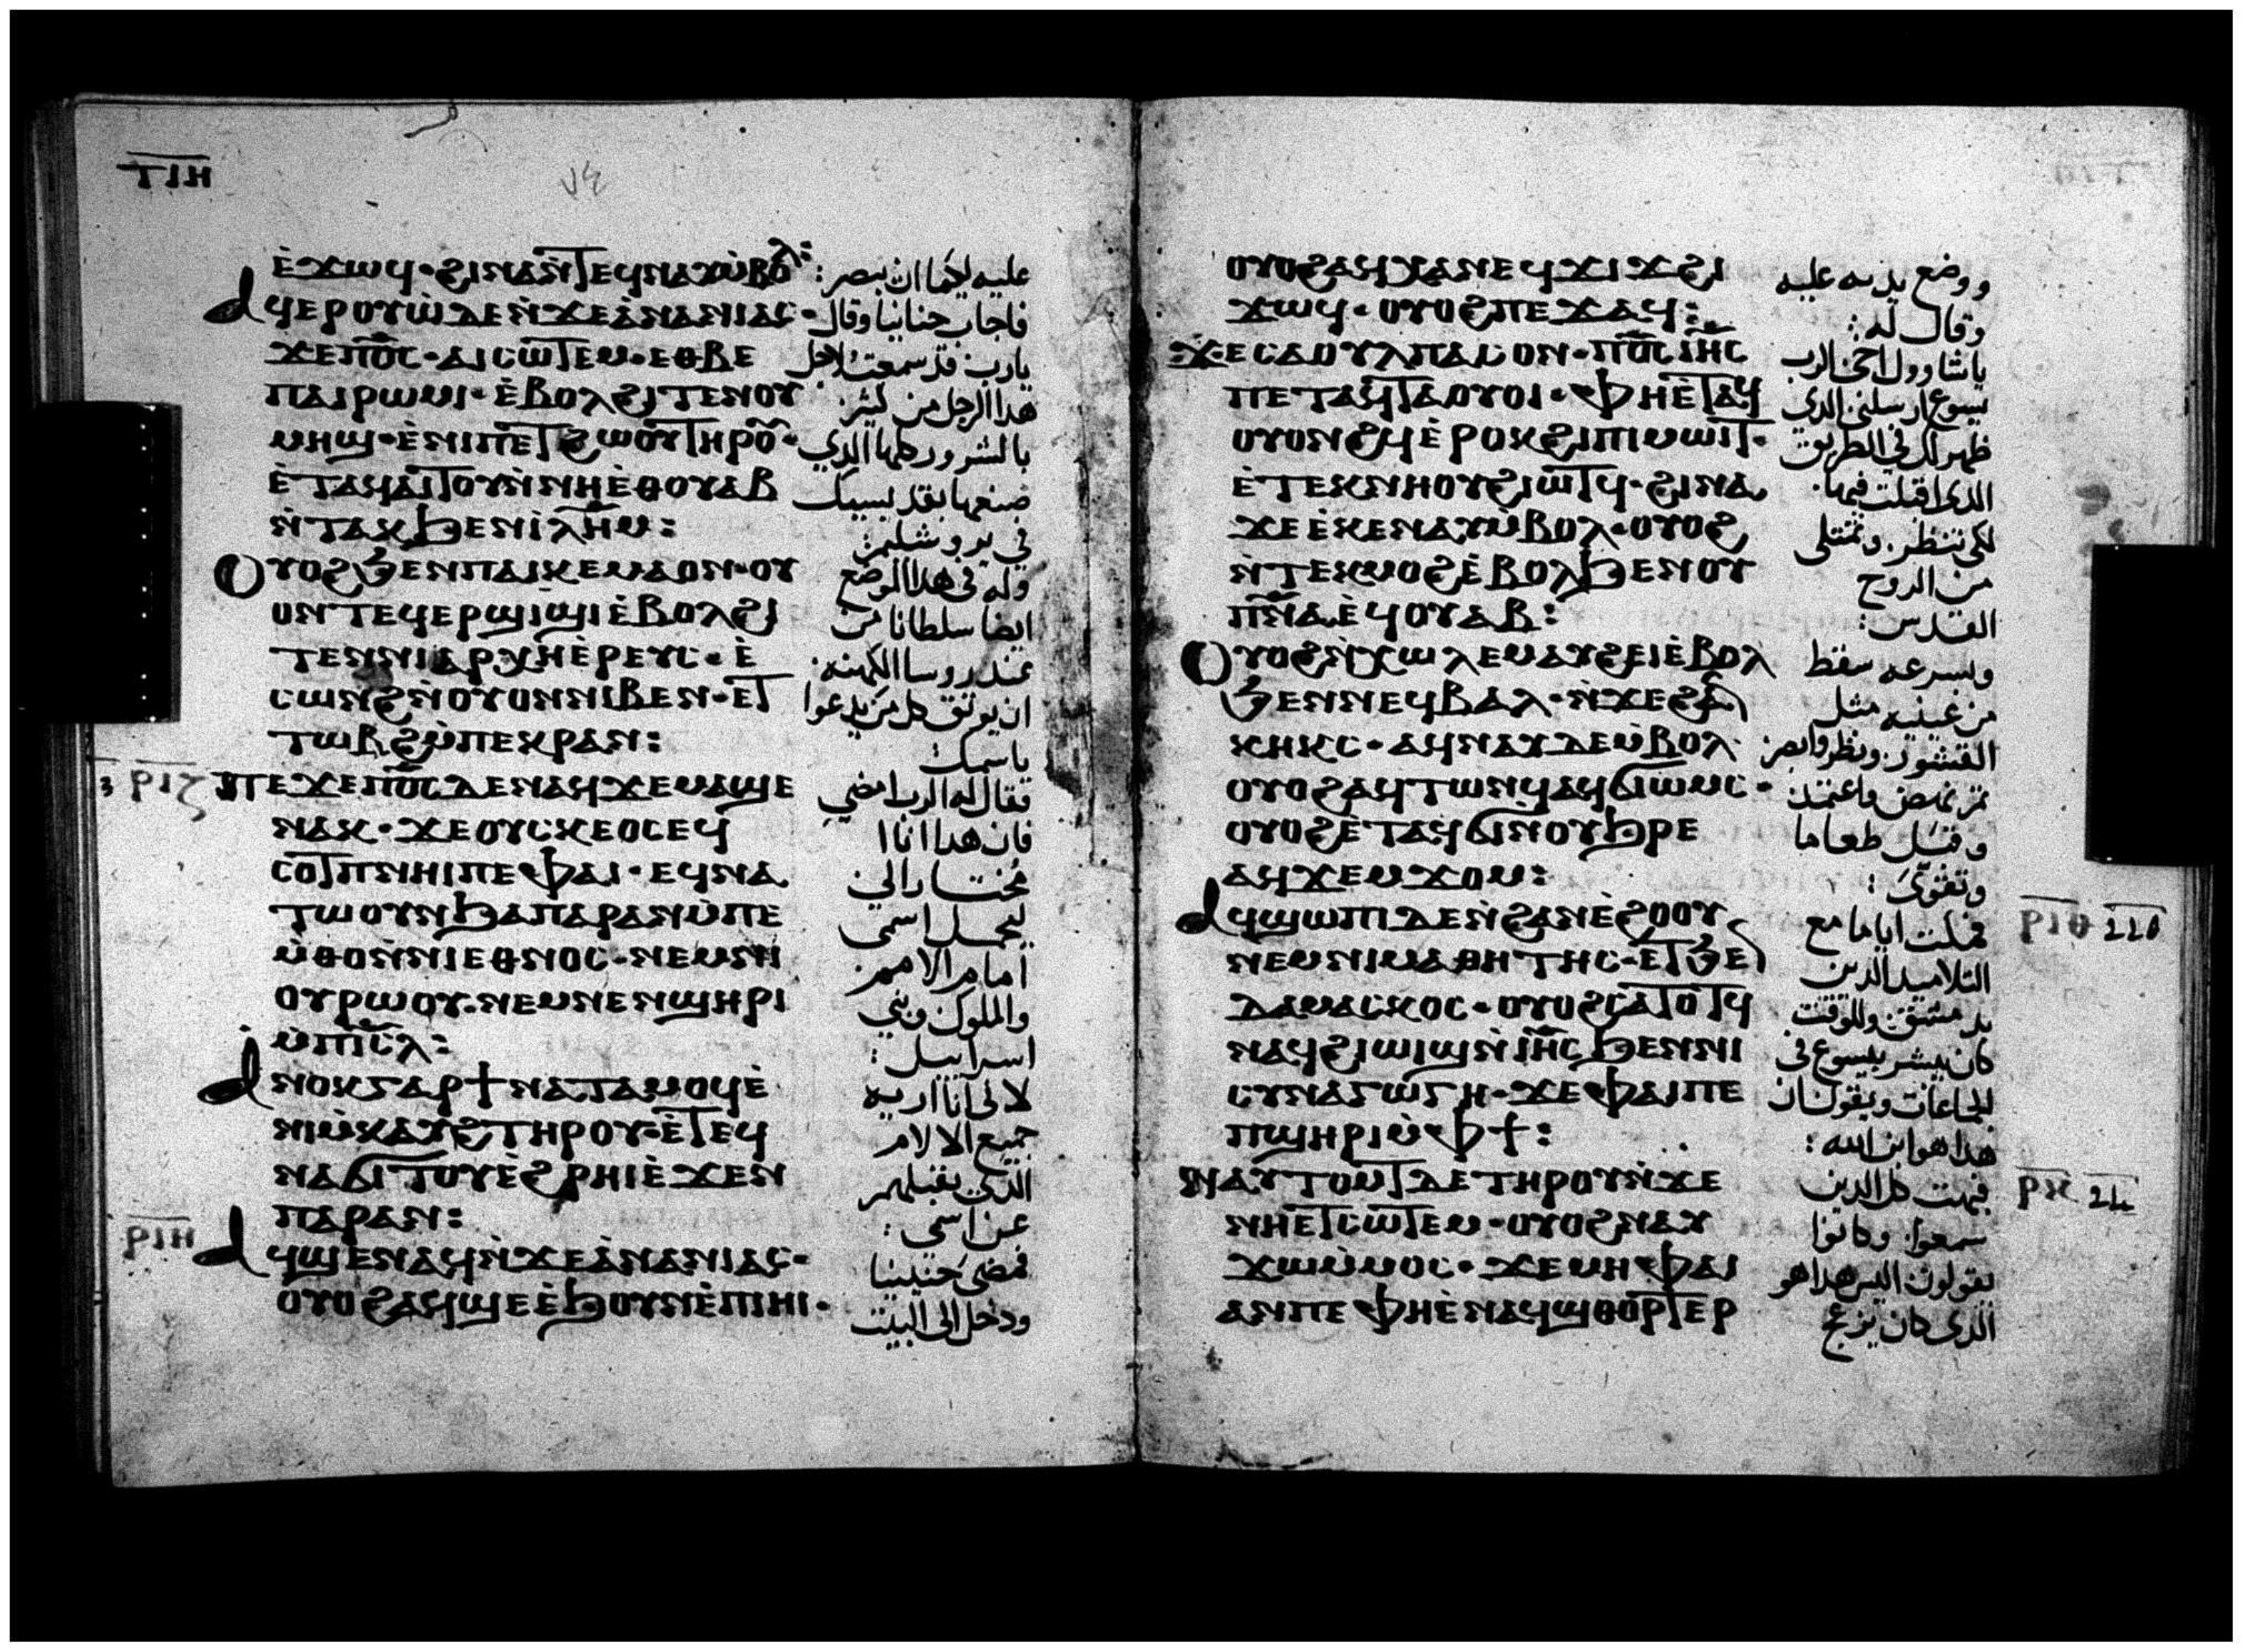 ⲧⲓⲏ
ⲉ̀ϫⲱϥ·ϩⲓⲛⲁⲛ̀ⲧⲉϥⲛⲁⲩⲙ̀ⲃⲟⲗ:
ⲁϥⲉⲣⲟⲩⲱ̀ⲇⲉⲛ̀ϫⲉⲁ̀ⲛⲁⲛⲓⲁⲥ·
ϫⲉⲡⲟ̅ⲥ̅·ⲁⲓⲥⲱⲧⲉⲙ·ⲉⲑⲃⲉ
ⲡⲁⲓⲣⲱⲙⲓ·ⲉ̀ⲃⲟⲗϩⲓⲧⲉⲛⲟⲩ
ⲙⲏϣ·ⲉ̀ⲛⲓⲡⲉⲧϩⲱⲟⲩⲧⲏⲣⲟ̅·
ⲉ̀ⲧⲁϥⲁⲓⲧⲟⲩⲛ̀ⲛⲏⲉ̀ⲑⲟⲩⲁⲃ
ⲛ̀ⲧⲁⲕϧⲉⲛⲓ̀ⲗ̅ⲏ̅ⲙ̅:
ⲟⲩⲟϩϧⲉⲛⲡⲁⲓⲕⲉⲙⲁⲟⲛ·ⲟⲩ
ⲟⲛⲧⲉϥⲉⲣϣⲓϣⲓⲉ̀ⲃⲟⲗϩⲓ
ⲧⲉⲛⲛⲓⲁⲣⲭⲏⲉ̀ⲣⲉⲩⲥ·ⲉ̀
ⲥⲱⲛϩⲛ̀ⲟⲩⲟⲛⲛⲓⲃⲉⲛ·ⲉⲧ
ⲧⲱⲃϩⲙ̀ⲡⲉⲕⲣⲁⲛ:
ⲣⲓⲍ
ⲡⲉϫⲉⲡⲟ̅ⲥ̅ⲇⲉⲛⲁϥϫⲉⲙⲁϣⲉ
ⲛⲁⲕ·ϫⲉⲟⲩⲥⲕⲉⲟⲥⲉϥ
ⲥⲟⲧⲡⲛⲏⲓⲡⲉⲫⲁⲓ·ⲉϥⲛⲁ
ⲧⲱⲟⲩⲛϧⲁⲡⲁⲣⲁⲛⲙ̀ⲡⲉ
ⲙ̀ⲑⲟⲛ̀ⲛⲓⲉⲑⲛⲟⲥ·ⲛⲉⲙⲛⲓ
ⲟⲩⲣⲱⲟⲩ·ⲛⲉⲙⲛⲉⲛϣⲏⲣⲓ
ⲙ̀ⲡⲓ̅ⲥ̅ⲗ̅:
ⲁⲛⲟⲕⲅⲁⲣϯⲛⲁⲧⲁⲙⲟϥⲉ̀
ⲛⲓⲙ̀ⲕⲁⲩϩⲧⲏⲣⲟⲩ·ⲉ̀ⲧⲉϥ
ⲛⲁϭⲓⲧⲟⲩⲉ̀ϩⲣⲏⲓⲉ̀ϫⲉⲛ
ⲡⲁⲣⲁⲛ:
ⲣⲓⲏ
ⲁϥϣⲉⲛⲁϥⲛ̀ϫⲉⲁ̀ⲛⲁⲛⲓⲁⲥ·
ⲟⲩⲟϩⲁϥϣⲉⲉ̀ϧⲟⲩⲛⲉ̀ⲡⲓⲏⲓ·
عليه ليكما ان يبصر:
فاجاب حنانيا وقال
يارب قد سمعت لاجل
هدا الرجل من كثير
بالشرور كلها الدي
صنعها بقديسيك
في يروشليم:
وله في هدا الموضع
ايضا سلطانا من
عند روسا الكهنه
ان يوثق كل من يدعوا
باسمك
فقال له الرب امضي
فان هدا انا
مختارا لي
ليحمل اسمي
امام الامم
والملوك وبني
اسراييل:
لاني انا اريه
جميع الالام
الدي يقبلهم
عن اسمي:
فمضى حنينيا
ودخل الى البيت
ⲟⲩⲟϩⲁϥⲭⲁⲛⲉϥϫⲓϫϩⲓ
ϫⲱϥ·ⲟⲩⲟϩⲡⲉϫⲁϥ:
ϫⲉⲥⲁⲟⲩⲗⲡⲁⲥⲟⲛ·ⲡⲟ̅ⲥ̅ⲓⲏ̅ⲥ̅
ⲡⲉⲧⲁϥⲧⲁⲟⲩⲟⲓ·ⲫⲏⲉ̀ⲧⲁϥ
ⲟⲩⲟⲛϩϥⲉ̀ⲣⲟⲕϩⲓⲡⲓⲙⲱⲓⲧ·
ⲉ̀ⲧⲉⲕⲛⲏⲟⲩϩⲓⲱⲧϥ·ϩⲓⲛⲁ
ϫⲉⲉ̀ⲕⲉⲛⲁⲩⲙ̀ⲃⲟⲗ·ⲟⲩⲟϩ
ⲛ̀ⲧⲉⲕⲙⲟϩⲉ̀ⲃⲟⲗϧⲉⲛⲟⲩ
ⲡ̅ⲛ̅ⲁ̅ⲉ̀ϥⲟⲩⲁⲃ:
ⲟⲩⲟϩⲛ̀ⲭⲱⲗⲉⲙⲁⲩϩⲉⲓⲉ̀ⲃⲟⲗ
ϧⲉⲛⲛⲉϥⲃⲁⲗ·ⲛ̀ϫⲉϩⲁⲛ
ⲕⲏⲕⲥ·ⲁϥⲛⲁⲩⲇⲉⲙ̀ⲃⲟⲗ
ⲟⲩⲟϩⲁϥⲧⲱⲛϥⲁϥϭⲓⲱⲙⲥ·
ⲟⲩⲟϩⲉ̀ⲧⲁϥϭⲓⲛⲟⲩϧⲣⲉ
ⲁϥϫⲉⲙϫⲟⲙ:
ⲁϥϣⲱⲡⲓⲇⲉⲛ̀ϩⲁⲛⲉ̀ϩⲟⲟⲩ
ⲛⲉⲙⲛⲓⲙⲁⲑⲏⲧⲏⲥ·ⲉⲧϧⲉⲛ
ⲇⲁⲙⲁⲥⲕⲟⲥ·ⲟⲩⲟϩⲥⲁⲧⲟⲧϥ
ⲛⲁϥϩⲓⲱⲓϣⲛ̀ⲓⲏ̅ⲥ̅ϧⲉⲛⲛⲓ
ⲥⲩⲛⲁⲅⲱⲅⲏ·ϫⲉⲫⲁⲓⲡⲉ
ⲡϣⲏⲣⲓⲙ̀ⲫϯ:
ⲛⲁⲩⲧⲟⲙⲧⲇⲉⲧⲏⲣⲟⲩⲛ̀ϫⲉ
ⲛⲏⲉⲧⲥⲱⲧⲉⲙ·ⲟⲩⲟϩⲛⲁⲩ
ϫⲱⲙ̀ⲙⲟⲥ·ϫⲉⲙⲏⲫⲁⲓ
ⲁⲛⲡⲉⲫⲏⲉ̀ⲛⲁϥϣⲑⲟⲣⲧⲉⲣ
ووضع يديه عليه
وقال له:
ياشاوول اخي الرب
يسوع ارسلني الدي
ظهر لك في الطريق
الدي اقبلت فيها
لكي تنظر وتمتلى
من الروح
القدس:
وبسرعه سقط
من عينيه مثل
القشور ونظر وابصر
ثم نهض واعتمد
وقبل طعاما
وتقوى:
فمكت اياما مع
التلاميد الدين
بدمشق وللوقت
كان يبشر بيسوع في
الجماعات ويقول ان
هدا هو ابن الله:
فبهت كل الدين
سمعوا وكانوا
يقولون اليس هدا هو
الدي كان يزعج
ⲣⲓⲑ
ⲣⲕ